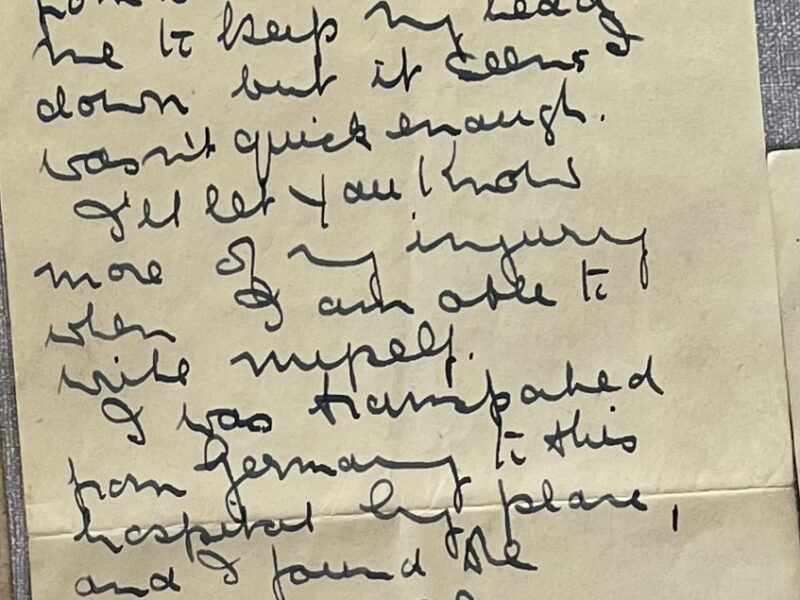 me to keep my head
down but it seems I
wasn't quick enough.
I'll let you know
more of my injury
when I am able to
write myself.
I was transported
from Germany to this
hospital by plane,
and I found the